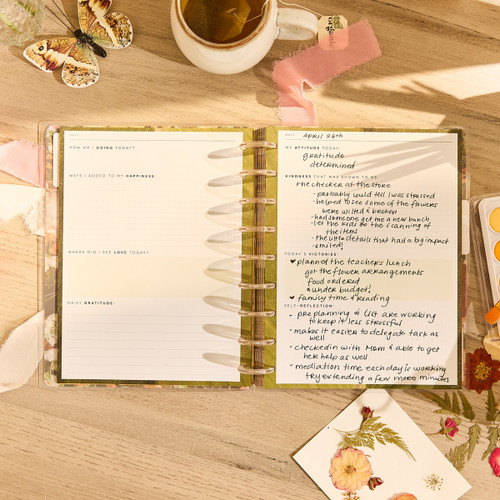 DATE:
HOW AM I DOING TODAY?
WAYS I ADDED TO MY HAPPINESS:
WHERE DID I SEE LOVE TODAY?
DAILY GRATITUDE:
DATE: April 26th
MY ATTITUDE TODAY:
gratitude
determined
KINDNESS THAT WAS SHOWN TO ME:
the checker at the store
- probably could tell I was stressed
- helped to see some of the flowers
were wilted & broken
- had someone get me a new bunch
- let the kids do the scanning of
the items
- the little details that had a big impact
- smiled!
TODAY'S VICTORIES:
♥ planned the teacher's lunch
got the flower arrangements
food ordered
* under budget!
♥ family time & reading
SELF-REFLECTION:
• pre planning & list are working
to keep it less stressful
• makes it easier to delegate task as
well
• checked in with Mom & able to get
her help as well
• mediation time each day is working
try extending a few more minutes